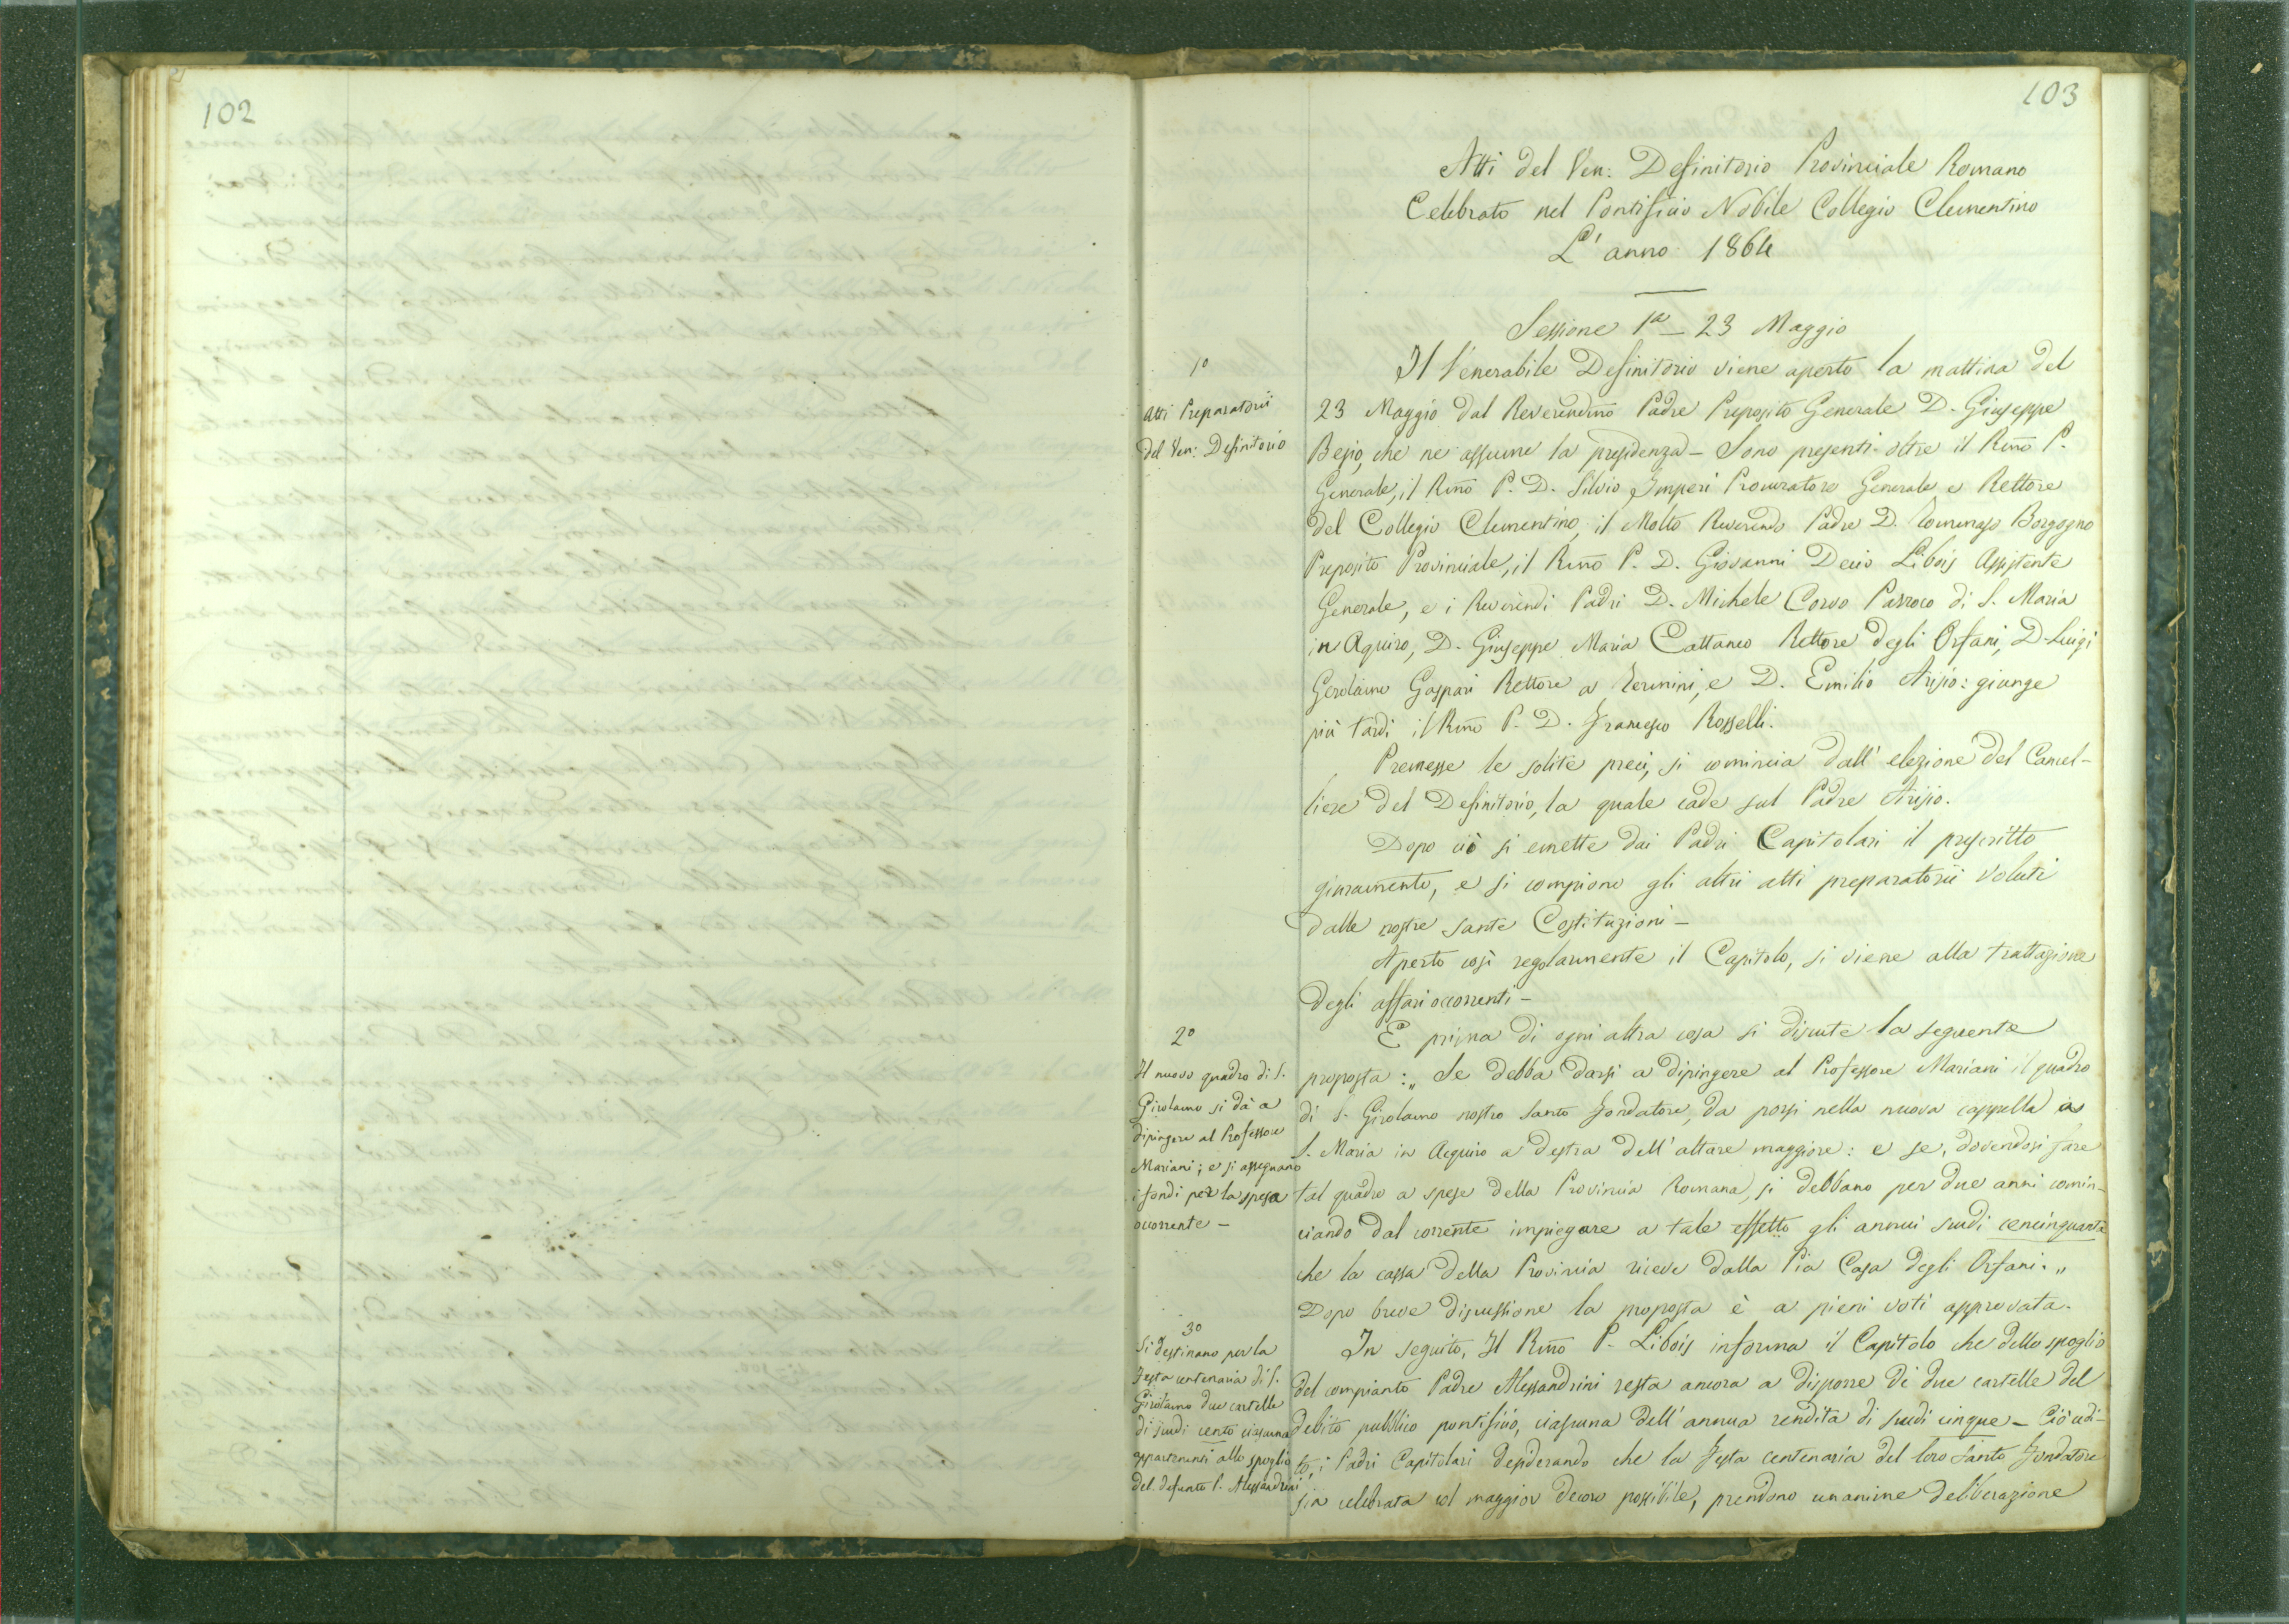 102
103
Atti del Ven: Definitorio Provinciale Romano
Celebrato nel Pontificio Nobile Collegio Clementino
L'anno 1864
Sessione 1ª – 23 Maggio
1º
Atti Preparatorii
del Ven: Definitorio
Il Venerabile Definitorio viene aperto la mattina del
23 Maggio dal Reverendm̃o Padre Preposito Generale D. Giuseppe
Besio, che ne assume la presidenza – Sono presenti oltre il Rm̃o P.
Generale, il Rm̃o P. D. Silvio Imperi Procuratore Generale e Rettore
del Collegio Clementino, il Molto Reverendo Padre D. Tommaso Borgogno
Preposito Provinciale, il Rm̃o P. D. Giovanni Decio Libois Assistente
Generale, e i Reverendi Padri D. Michele Corvo Parroco di S. Maria
in Aquiro, D. Giuseppe Maria Cattaneo Rettore degli Orfani, D. Luigi
Gerolamo Gaspari Rettore a Termini, e D. Emilio Arisio: giunge
più tardi il Rm̃o P. D. Francesco Rosselli.
Premesse le solite preci, si comincia dall' elezione del Cancel-
liere del Definitorio, la quale cade sul Padre Arisio.
Dopo ciò si emette dai Padri Capitolari il prescritto
giuramento, e si compiono gli altri atti preparatorii voluti
dalle nostre sante Costituzioni –
Aperto così regolarmente il Capitolo, si viene alla trattazione
degli affari occorrenti –
2º
Il nuovo quadro di S.
Girolamo si dà a
dipingere al Professore
Mariani; e si assegnano
i fondi per la spesa
occorrente –
E prima di ogni altra cosa si discute la seguente
proposta: „ Se debba darsi a dipingere al Professore Mariani il quadro
di S. Girolamo nostro Santo Fondatore, da porsi nella nuova cappella a
S. Maria in Acquiro a destra dell' altare maggiore: e se, dovendosi fare
tal quadro a spese della Provincia Romana, si debbano per due anni comin-
ciando dal corrente impiegare a tale effetto gli annui scudi cencinquanta
che la cassa della Provincia riceve dalla Pia Casa degli Orfani. „
Dopo breve discussione la proposta è a pieni voti approvata.
3º
Si destinano per la
Festa centenaria di S.
Girolamo due cartelle
di scudi cento ciascuna
appartenenti allo spoglio
del defunto P. Alessandrini
In seguito, Il Rm̃o P. Libois informa il Capitolo che dello spoglio
del compianto Padre Alessandrini resta ancora a disporre di due cartelle del
debito pubblico pontificio, ciascuna dell' annua rendita di scudi cinque – Ciò udi-
to, i Padri Capitolari desiderando che la festa centenaria del loro Santo Fondatore
sia celebrata col maggior decoro possibile, prendono unanime deliberazione